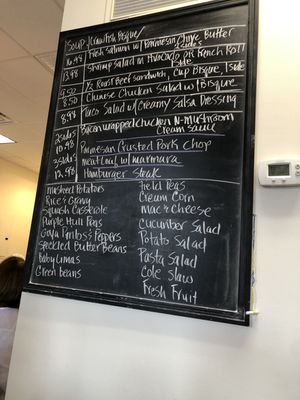 Soup: Crawfish Bisque
16.98 Fresh Salmon w/ Parmesan Chive Butter
2sides
13.98 Shrimp Salad in Avocado or French Roll
1side
9.50 1/2 Roast Beef Sandwich, Cup Bisque, 1side
8.50 Chinese Chicken Salad w/ Bisque
8.98 Taco Salad w/ Creamy Salsa Dressing
2sides Bacon wrapped Chicken N-Mushroom
10.98 Cream Sauce
3sides Parmesan Crusted Pork Chop
12.98 Meatloaf w/ marinara
Hamburger Steak
Mashed Potatoes
Rice & Gravy
Squash Casserole
Purple Hull Peas
Speckled Butter Beans
Baby Limas
Green Beans
Field Peas
Cream Corn
Mac & Cheese
Cucumber Salad
Potato Salad
Pasta Salad
Cole Slaw
Fresh Fruit